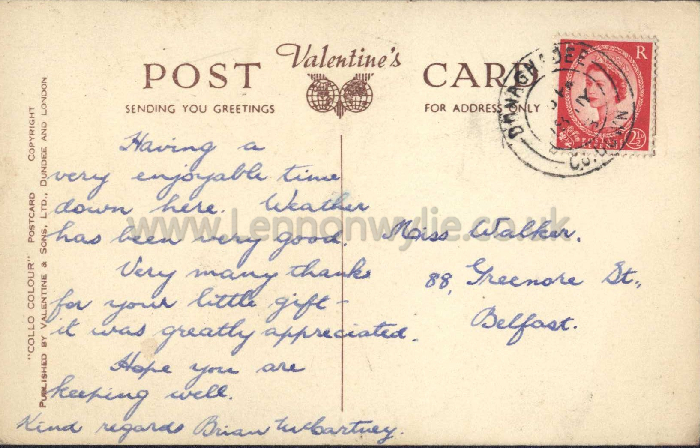 Valentine's
POST CARD
SENDING YOU GREETINGS
FOR ADDRESS ONLY
"COLLO COLOUR" POSTCARD COPYRIGHT
PUBLISHED BY VALENTINE & SONS, LTD., DUNDEE AND LONDON
Having a
very enjoyable time
down here. Weather
has been very good.
Very many thanks
for your little gift -
it was greatly appreciated.
Hope you are
keeping well.
Kind regards Brian McCartney.
Miss Walker,
88, Greenore St.,
Belfast.
R
2½
DONAGHADEE
CO. DOWN
www.Lennonwylie.co.uk